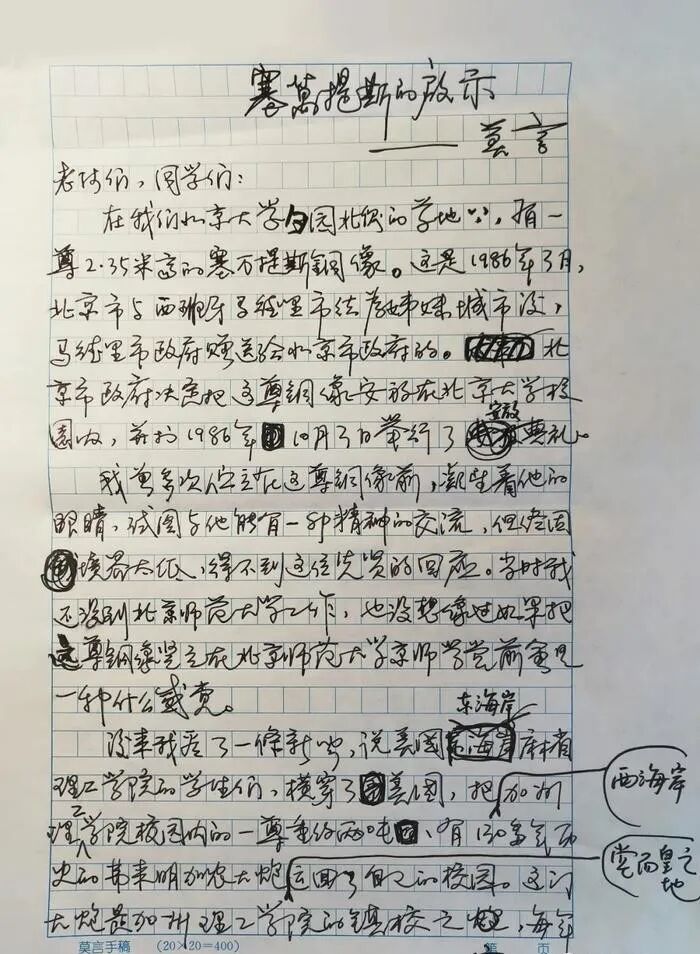 塞萬提斯的啟示
——莫言
老师们，同学们：
在我们北京大学勺园北侧的草地上，有一
尊2.35米高的塞万提斯銅像。这是1986年3月，
北京市与西班牙马德里市结为姊妹城市后，
马德里市政府赠送给北京市政府的。北
京市政府决定把这尊銅像安放在北京大学校
園内，并於1986年10月3日举行了安放典礼。
我曾多次伫立在这尊銅像前，凝望着他的
眼睛，试图与他能有一种精神的交流，但终因
境界太低，得不到这位先贤的回应。当时我
还没到北京师范大学工作，也没想像过如果把
这尊銅像竖立在北京师范大学京师学堂前会是
一种什么感觉。
后来我看了一條新闻，说美国东海岸麻省
理工学院的学生们，横穿了美国，把西海岸加州
理工学院校园内的一尊重约两吨、有130多年历
史的弗莱明加农大炮堂而皇之地运回了自己的校园。这门
大炮是加州理工学院的镇校之炮，每年
莫言手稿 （20×20=400） 第 页